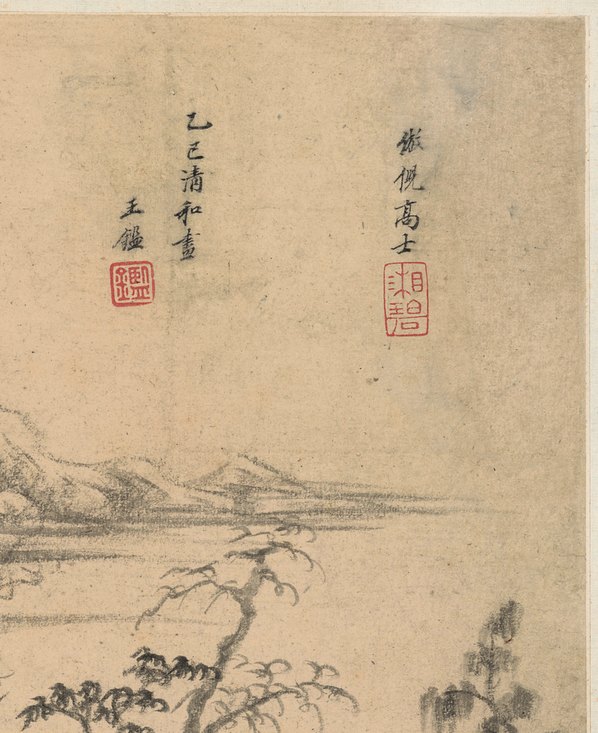 倣倪高士
湘碧
乙巳清和畫
王鑑
鑑